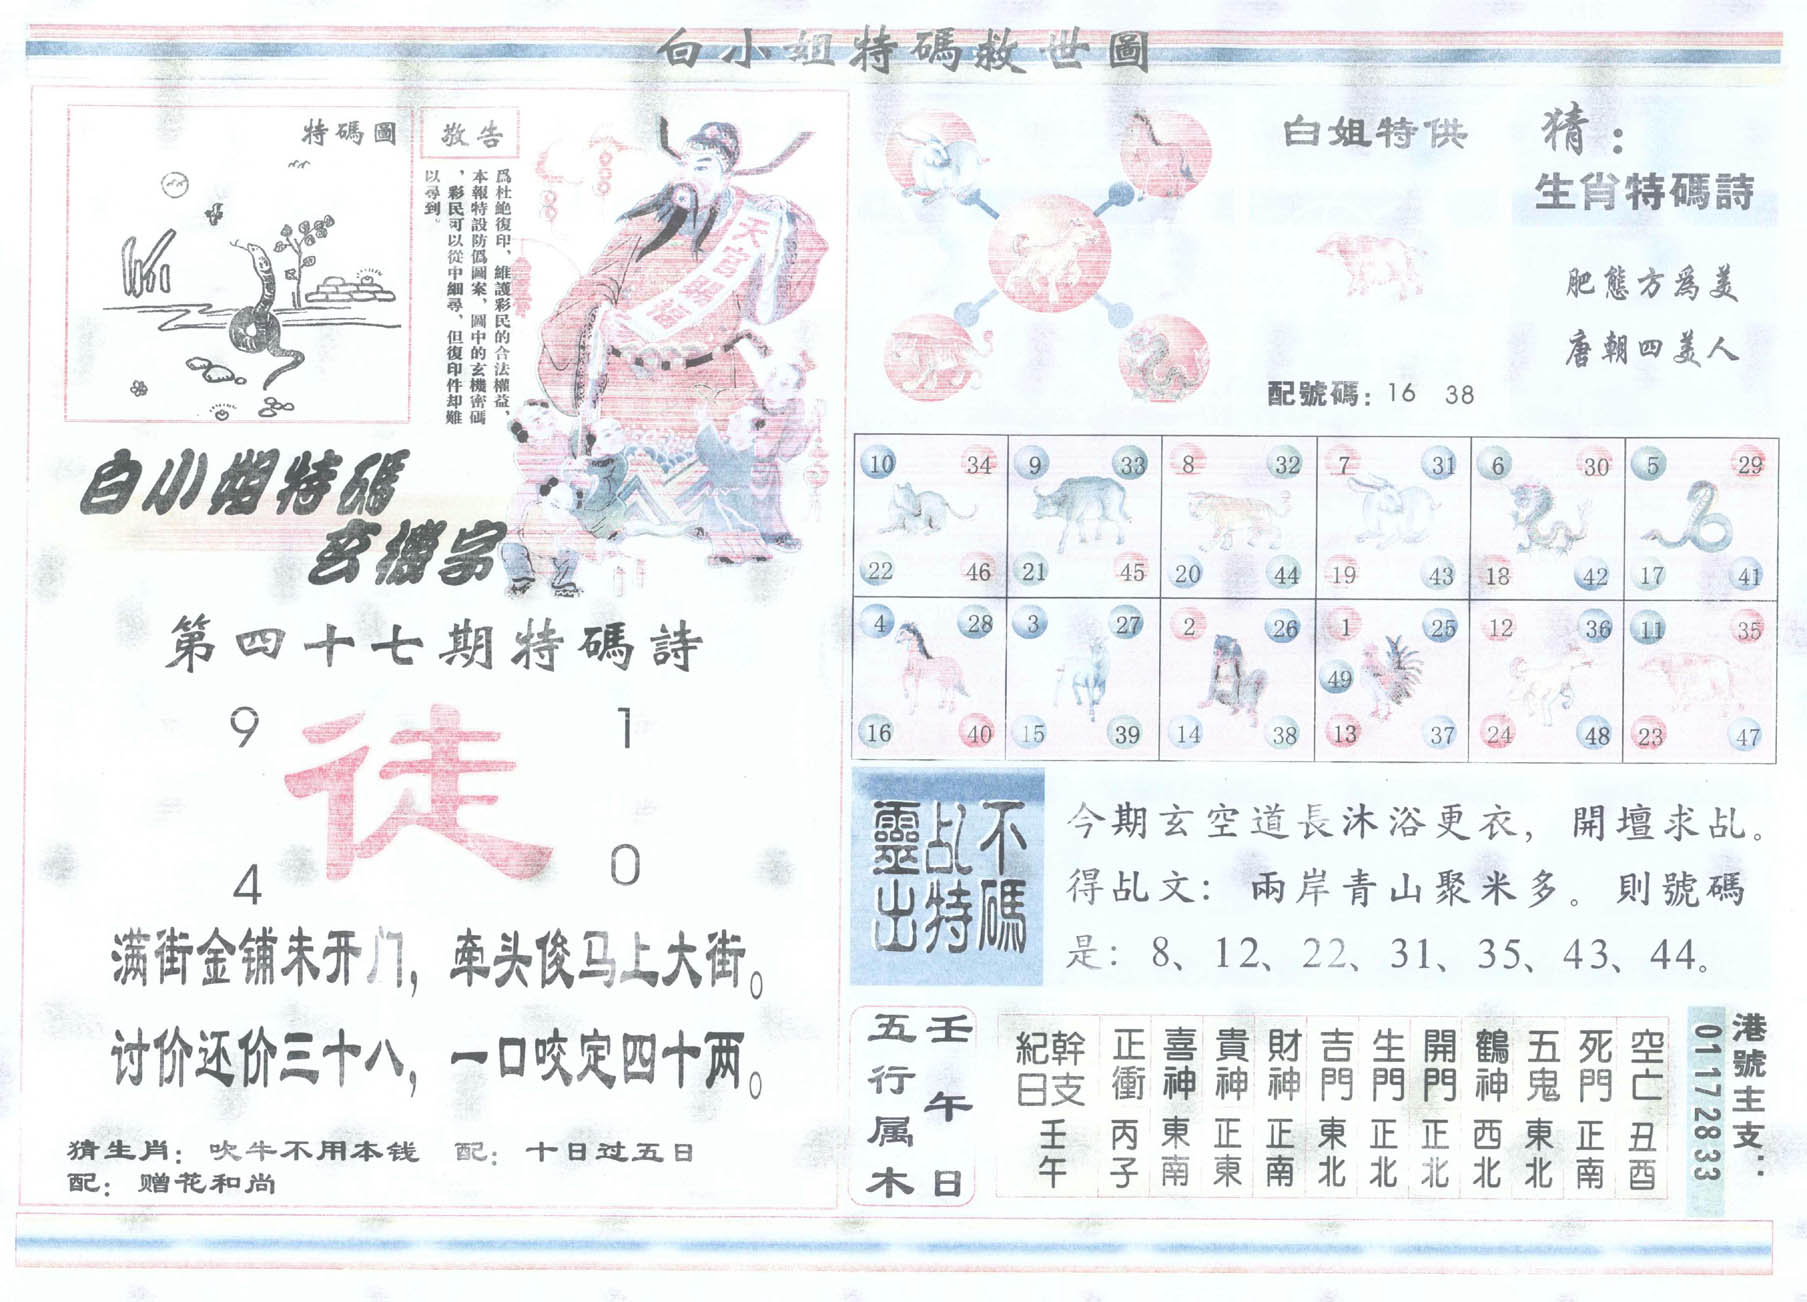 白小姐特碼救世圖
特碼圖
敬告
爲杜絶復印、維護彩民的合法權益，
本報特設防僞圖案，圖中的玄機密碼
，彩民可以從中細尋，但復印件却難
以尋到。
天官賜福
白小姐特碼
玄機字
第四十七期特碼詩
9 1
徒
4 0
满街金铺未开门，牵头俊马上大街。
讨价还价三十八，一口咬定四十两。
猜生肖：吹牛不用本钱 配：十日过五日
配：赠花和尚
白姐特供
配號碼：16 38
猜：
生肖特碼詩
肥態方爲美
唐朝四美人
10 34 9 33 8 32 7 31 6 30 5 29
22 46 21 45 20 44 19 43 18 42 17 41
4 28 3 27 2 26 1 25 12 36 11 35
49
16 40 15 39 14 38 13 37 24 48 23 47
不碼
乩特
靈出
今期玄空道長沐浴更衣，開壇求乩。
得乩文：兩岸青山聚米多。則號碼
是：8、12、22、31、35、43、44。
壬午日
五行属木
幹支紀日 正衝 喜神 貴神 財神 吉門 生門 開門 鶴神 五鬼 死門 空亡
壬午 丙子 東南 正東 正南 東北 正北 正北 西北 東北 正南 丑酉
港號主支：
01172833